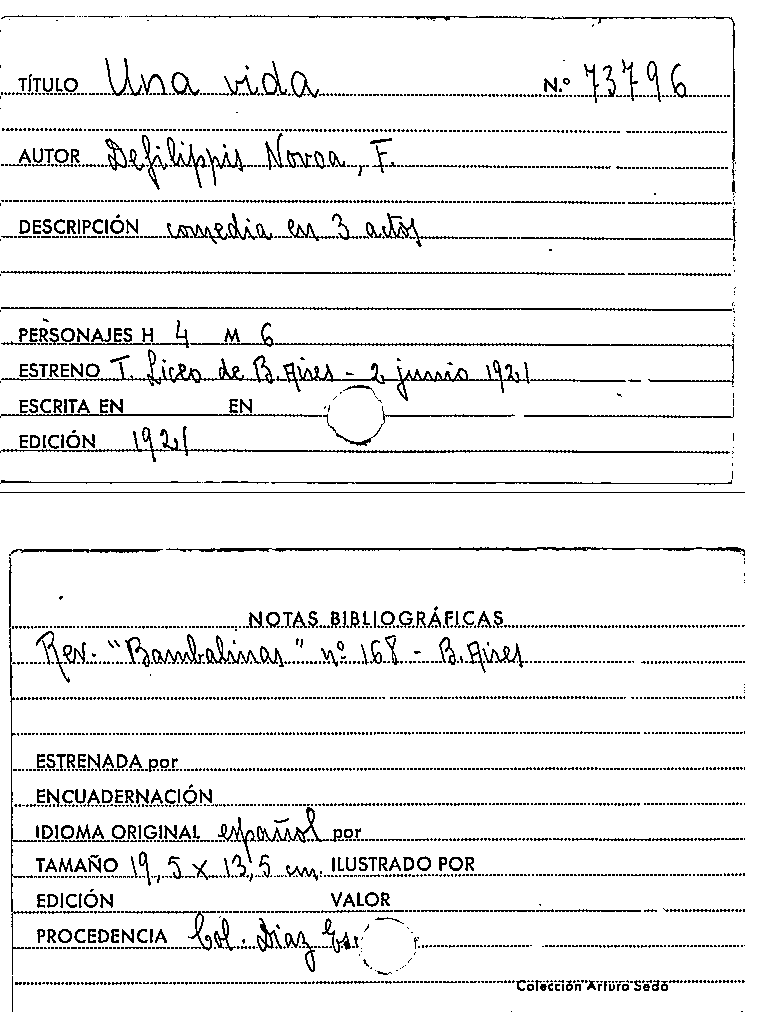 TÍTULO Una vida N.º 73796
AUTOR Defilippis Novoa, F.
DESCRIPCIÓN comedia en 3 actos
PERSONAJES H 4 M 6
ESTRENO T. Liceo de B. Aires - 2 junio 1921
ESCRITA EN EN
EDICIÓN 1921
NOTAS BIBLIOGRÁFICAS
Rev. "Bambalinas" nº 168 - B. Aires
ESTRENADA por
ENCUADERNACIÓN
IDIOMA ORIGINAL español por
TAMAÑO 19,5 x 13,5 cm. ILUSTRADO POR
EDICIÓN VALOR
PROCEDENCIA Col. Diaz
Colección Arturo Sedó